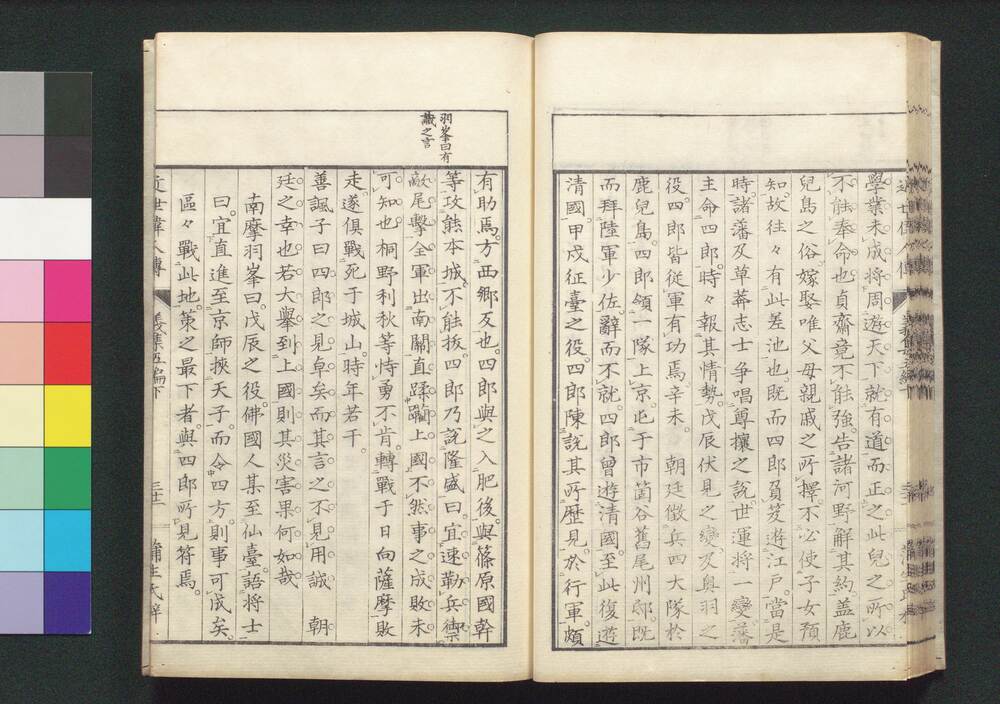 學業未成將周遊天下就有道而正之此兒之所以
不能奉命也貞齋竟不能強告諸河野解其約蓋鹿
兒島之俗嫁娶唯父母親戚之所擇不必使子女預
知故往々有此差池也既而四郎負笈遊江戶當是
時諸藩及草莽志士爭唱尊攘之說世運將一變藩
主命四郎時々報其情勢戊辰伏見之變及奧羽之
役四郎皆從軍有功焉辛未 朝廷徵兵四大隊於
鹿兒島四郎領一隊上京屯于市箇谷舊尾州邸既
而拜陸軍少佐辭而不就四郎曾遊清國至此復遊
清國甲戌征臺之役四郎陳說其所歷見於行軍頗
羽峯曰有
識之言
有助焉方西鄉反也四郎與之入肥後與篠原國幹
等攻熊本城不能拔四郎乃說隆盛曰宜速勒兵禦
敵尾擊全軍出南關直蹂躪上國不然事之成敗未
可知也桐野利秋等恃勇不肯轉戰于日向薩摩敗
走遂俱戰死于城山時年若干
善諷子曰四郎之見卓矣而其言之不見用誠 朝
廷之幸也若大舉到上國則其災害果何如哉
南摩羽峯曰戊辰之役佛國人某至仙臺語將士
曰宜直進至京師挾天子而令四方則事可成矣
區々戰此地策之最下者與四郎所見符焉
近世偉人傳 義集五編下 三十一 蒲生氏梓